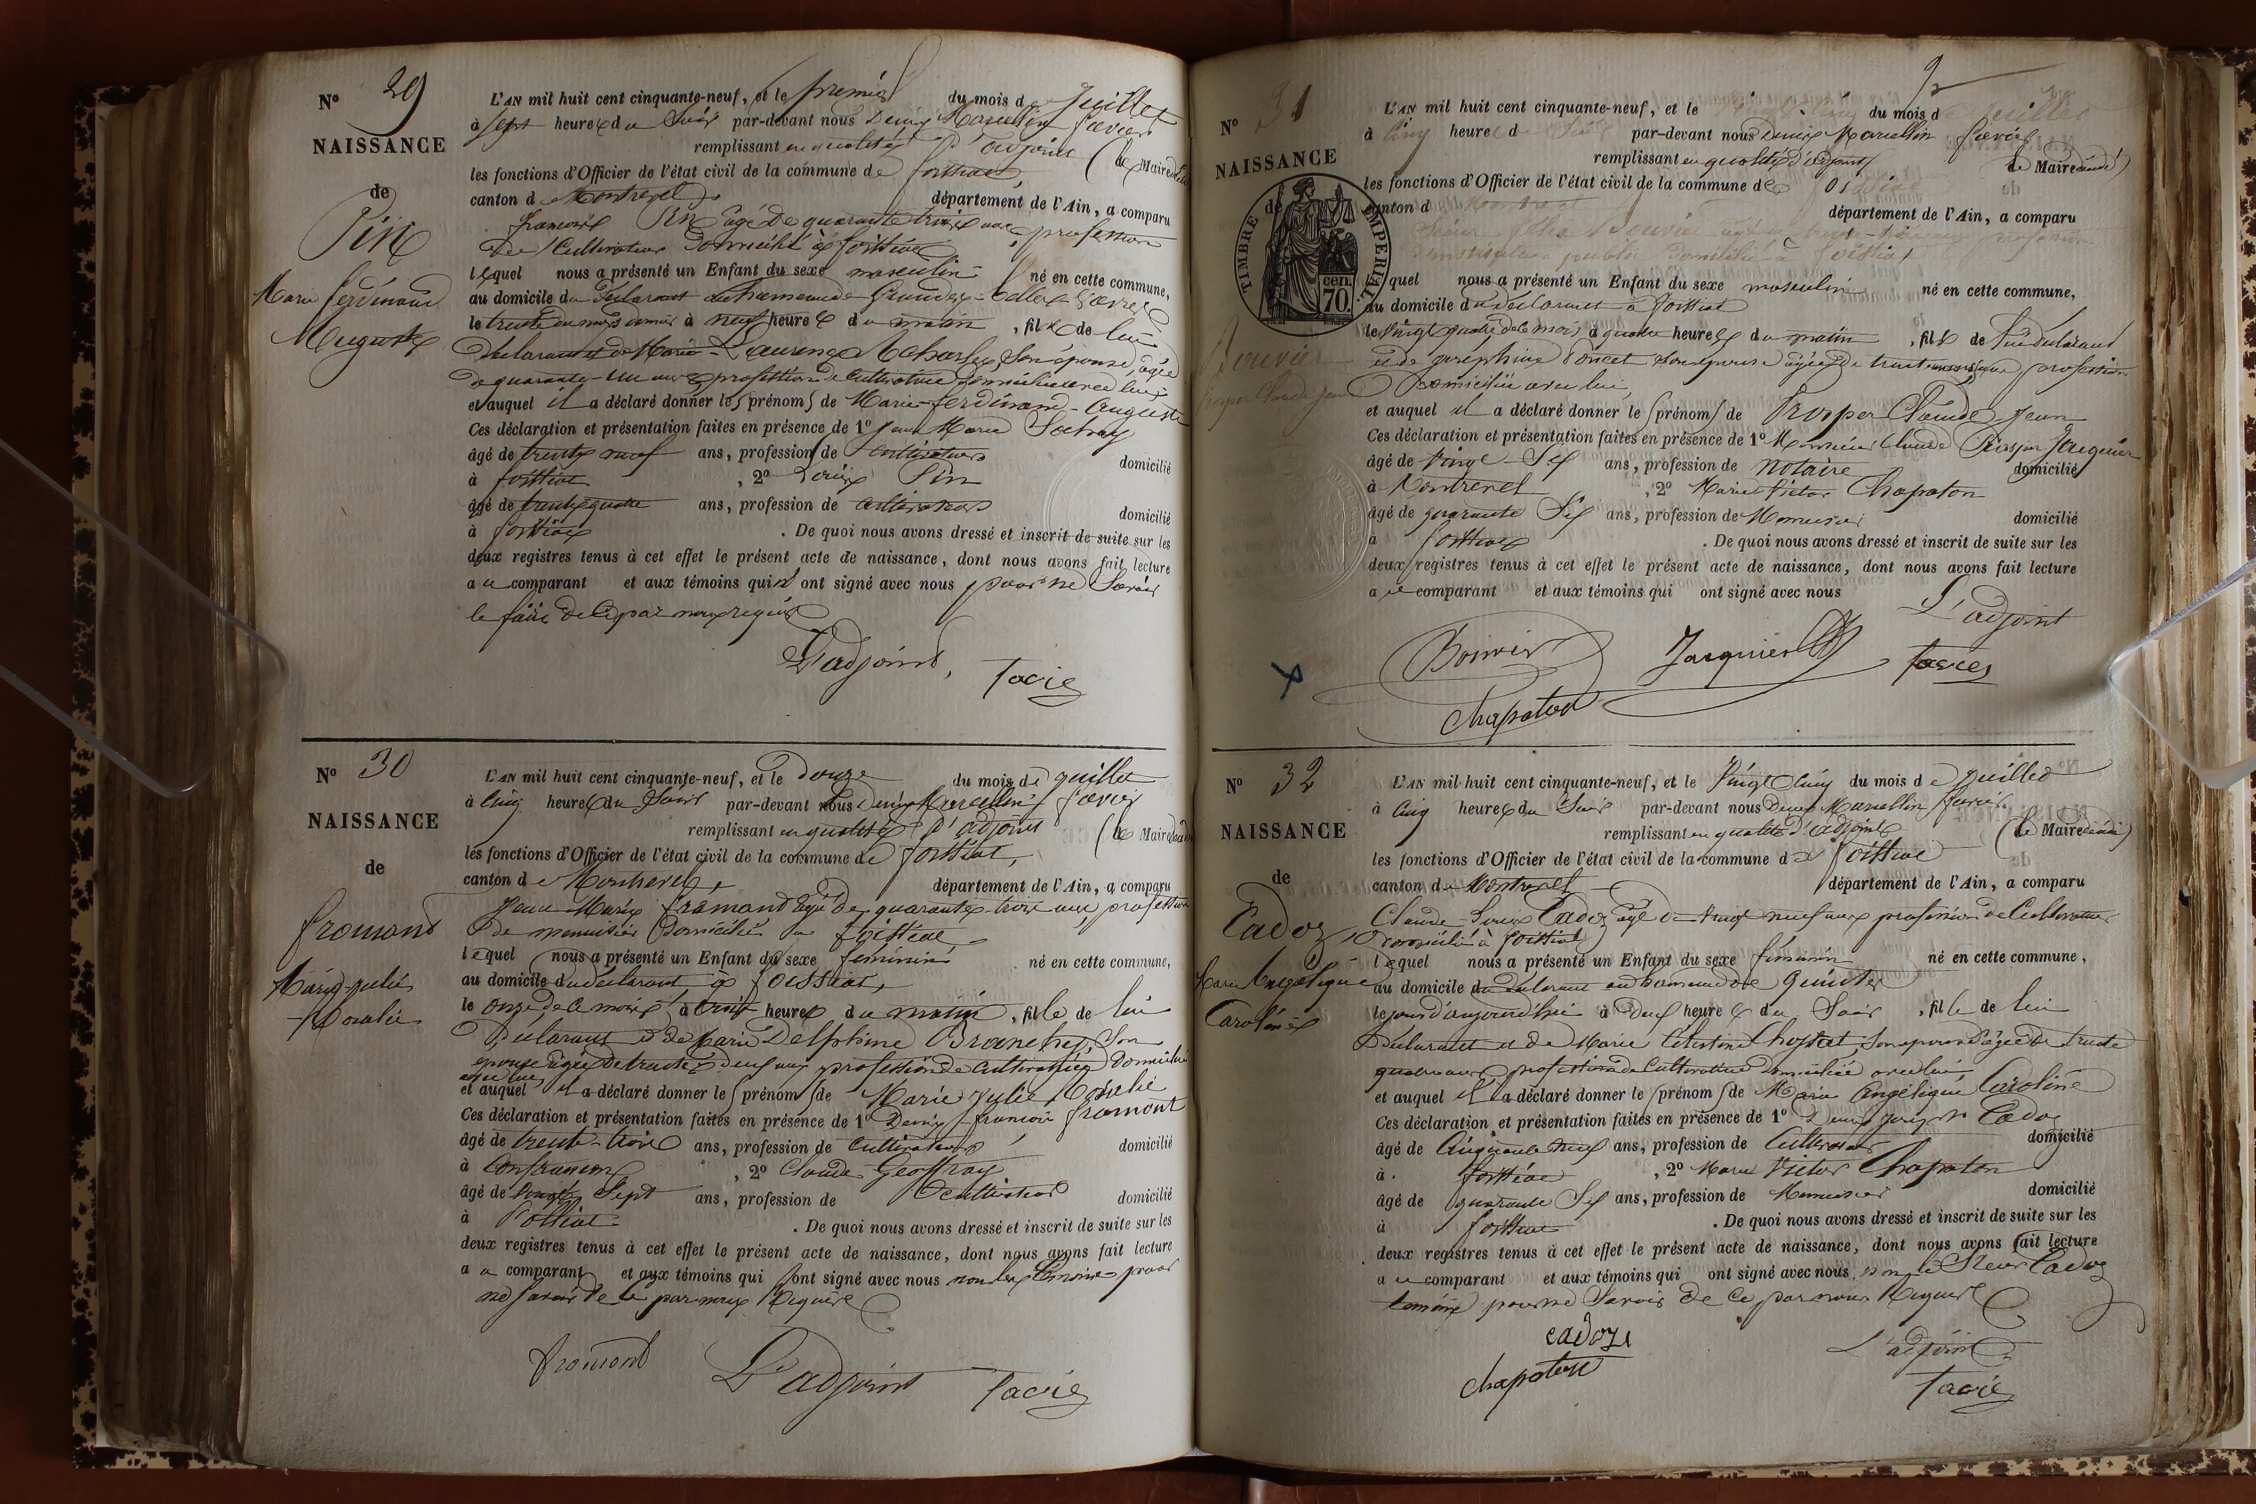 N° 29
NAISSANCE
de
Pin
Marie ferdinand
Auguste
L'AN mil huit cent cinquante-neuf, et le premier du mois d Juillet
à sept heures du Soir par-devant nous Denis Marcellin favier
remplissant en qualité d'adjoint (le Maire
les fonctions d'Officier de l'état civil de la commune de foissiat
canton de Montrevel département de l'Ain, a comparu
francois Pin agé de quarante trois ans, profession
de Cultivateur domicilié à foissiat
lequel nous a présenté un Enfant du sexe masculin né en cette commune,
au domicile du Déclarant au hameau de
le trente du mois dernier à neuf heures du matin, fils de lui
Déclarant et de Marie Laurence Son épouse, agée
de quarante-un ans profession de Cultivatrice domiciliée avec lui
et auquel il a déclaré donner les prénoms de Marie-ferdinand-Auguste
Ces déclaration et présentation faites en présence de 1° Jean Marie
âgé de trente neuf ans, profession de cultivateur domicilié
à foissiat, 2° Pin
âgé de trente quatre ans, profession de cultivateur domicilié
à foissiat. De quoi nous avons dressé et inscrit de suite sur les
deux registres tenus à cet effet le présent acte de naissance, dont nous avons fait lecture
au comparant et aux témoins qui n'ont signé avec nous pour ne Savoir
le faire de ce par nous requis
L'adjoint, favier
N° 30
NAISSANCE
de
fromont
Marie-julie
Rosalie
L'AN mil huit cent cinquante-neuf, et le Douze du mois de juillet
à Cinq heures du Soir par-devant nous Denis Marcellin favier
remplissant en qualité d'adjoint (le Maire
les fonctions d'Officier de l'état civil de la commune de foissiat,
canton de Montrevel, département de l'Ain, a comparu
Jean Marie fromont agé de quarante-trois ans, profession
de menuisier domicilié à foissiat,
lequel nous a présenté un Enfant du sexe féminin né en cette commune,
au domicile du déclarant à foissiat,
le onze de ce mois à trois heures du matin, fille de lui
Déclarant et de Marie Delphine Branche, Son
épouse agée de trente-deux ans profession de cultivatrice Domiciliée
avec lui
et auquel il a déclaré donner les prénoms de Marie Julie Rosalie
Ces déclaration et présentation faites en présence de 1° Denis-francois fromont
âgé de trente-trois ans, profession de cultivateur domicilié
à Confrançon, 2° Claude Geoffray
âgé de Sept ans, profession de cultivateur domicilié
à foissiat. De quoi nous avons dressé et inscrit de suite sur les
deux registres tenus à cet effet le présent acte de naissance, dont nous avons fait lecture
au comparant et aux témoins qui ont signé avec nous non les témoins pour
ne savoir de ce par nous Requis
fromont L'adjoint favier
N° 31
NAISSANCE
de
TIMBRE IMPERIAL
70 cen.
Bouvier
Prosper Claude Jean
L'AN mil huit cent cinquante-neuf, et le du mois d Juillet
à Cinq heures du Soir par-devant nous Denis Marcellin favier
remplissant en qualité d'adjoint le Maire
les fonctions d'Officier de l'état civil de la commune de foissiat
canton d Montrevel département de l'Ain, a comparu
Bouvier profession
Instituteur public domicilié à foissiat
lequel nous a présenté un Enfant du sexe masculin né en cette commune,
au domicile du déclarant à foissiat
le Vingt quatre de ce mois à quatre heures du matin, fils de lui déclarant
et de Josephine Poncet Son épouse agée de trente ans profession
domiciliée avec lui
et auquel il a déclaré donner les prénoms de Prosper Claude Jean
Ces déclaration et présentation faites en présence de 1° Monsieur Claude Prosper Jacquier
âgé de Vingt-Six ans, profession de notaire domicilié
à Montrevel, 2° Marie Victor Chapaton
âgé de quarante Six ans, profession de Menuisier domicilié
à foissiat. De quoi nous avons dressé et inscrit de suite sur les
deux registres tenus à cet effet le présent acte de naissance, dont nous avons fait lecture
au comparant et aux témoins qui ont signé avec nous
L'adjoint
Bouvier Jacquier favier
Chapaton
N° 32
NAISSANCE
de
Cadoz
Marie Angelique
Caroline
L'AN mil huit cent cinquante-neuf, et le Vingt Cinq du mois de Juillet
à Cinq heures du Soir par-devant nous Denis Marcellin favier
remplissant en qualité d'adjoint (le Maire
les fonctions d'Officier de l'état civil de la commune de foissiat
canton de Montrevel département de l'Ain, a comparu
Claude-Louis Cadoz agé de Vingt neuf ans profession de Cultivateur
Domicilié à foissiat
lequel nous a présenté un Enfant du sexe féminin né en cette commune,
au domicile du déclarant au hameau de
le jour d'aujourd'hui à Deux heures du Soir, fille de lui
Déclarant et de Marie Célestine Son épouse agée de trente
quatre ans profession de Cultivatrice domiciliée avec lui
et auquel il a déclaré donner les prénoms de Marie Angélique Caroline
Ces déclaration et présentation faites en présence de 1° Denis Joseph Cadoz
âgé de Cinquante neuf ans, profession de Cultivateur domicilié
à foissiat, 2° Marie Victor Chapaton
âgé de quarante Six ans, profession de Menuisier domicilié
à foissiat. De quoi nous avons dressé et inscrit de suite sur les
deux registres tenus à cet effet le présent acte de naissance, dont nous avons fait lecture
au comparant et aux témoins qui ont signé avec nous non le Sieur Cadoz
témoin pour ne Savoir de ce par nous Requis
cadoz L'adjoint
chapaton favier